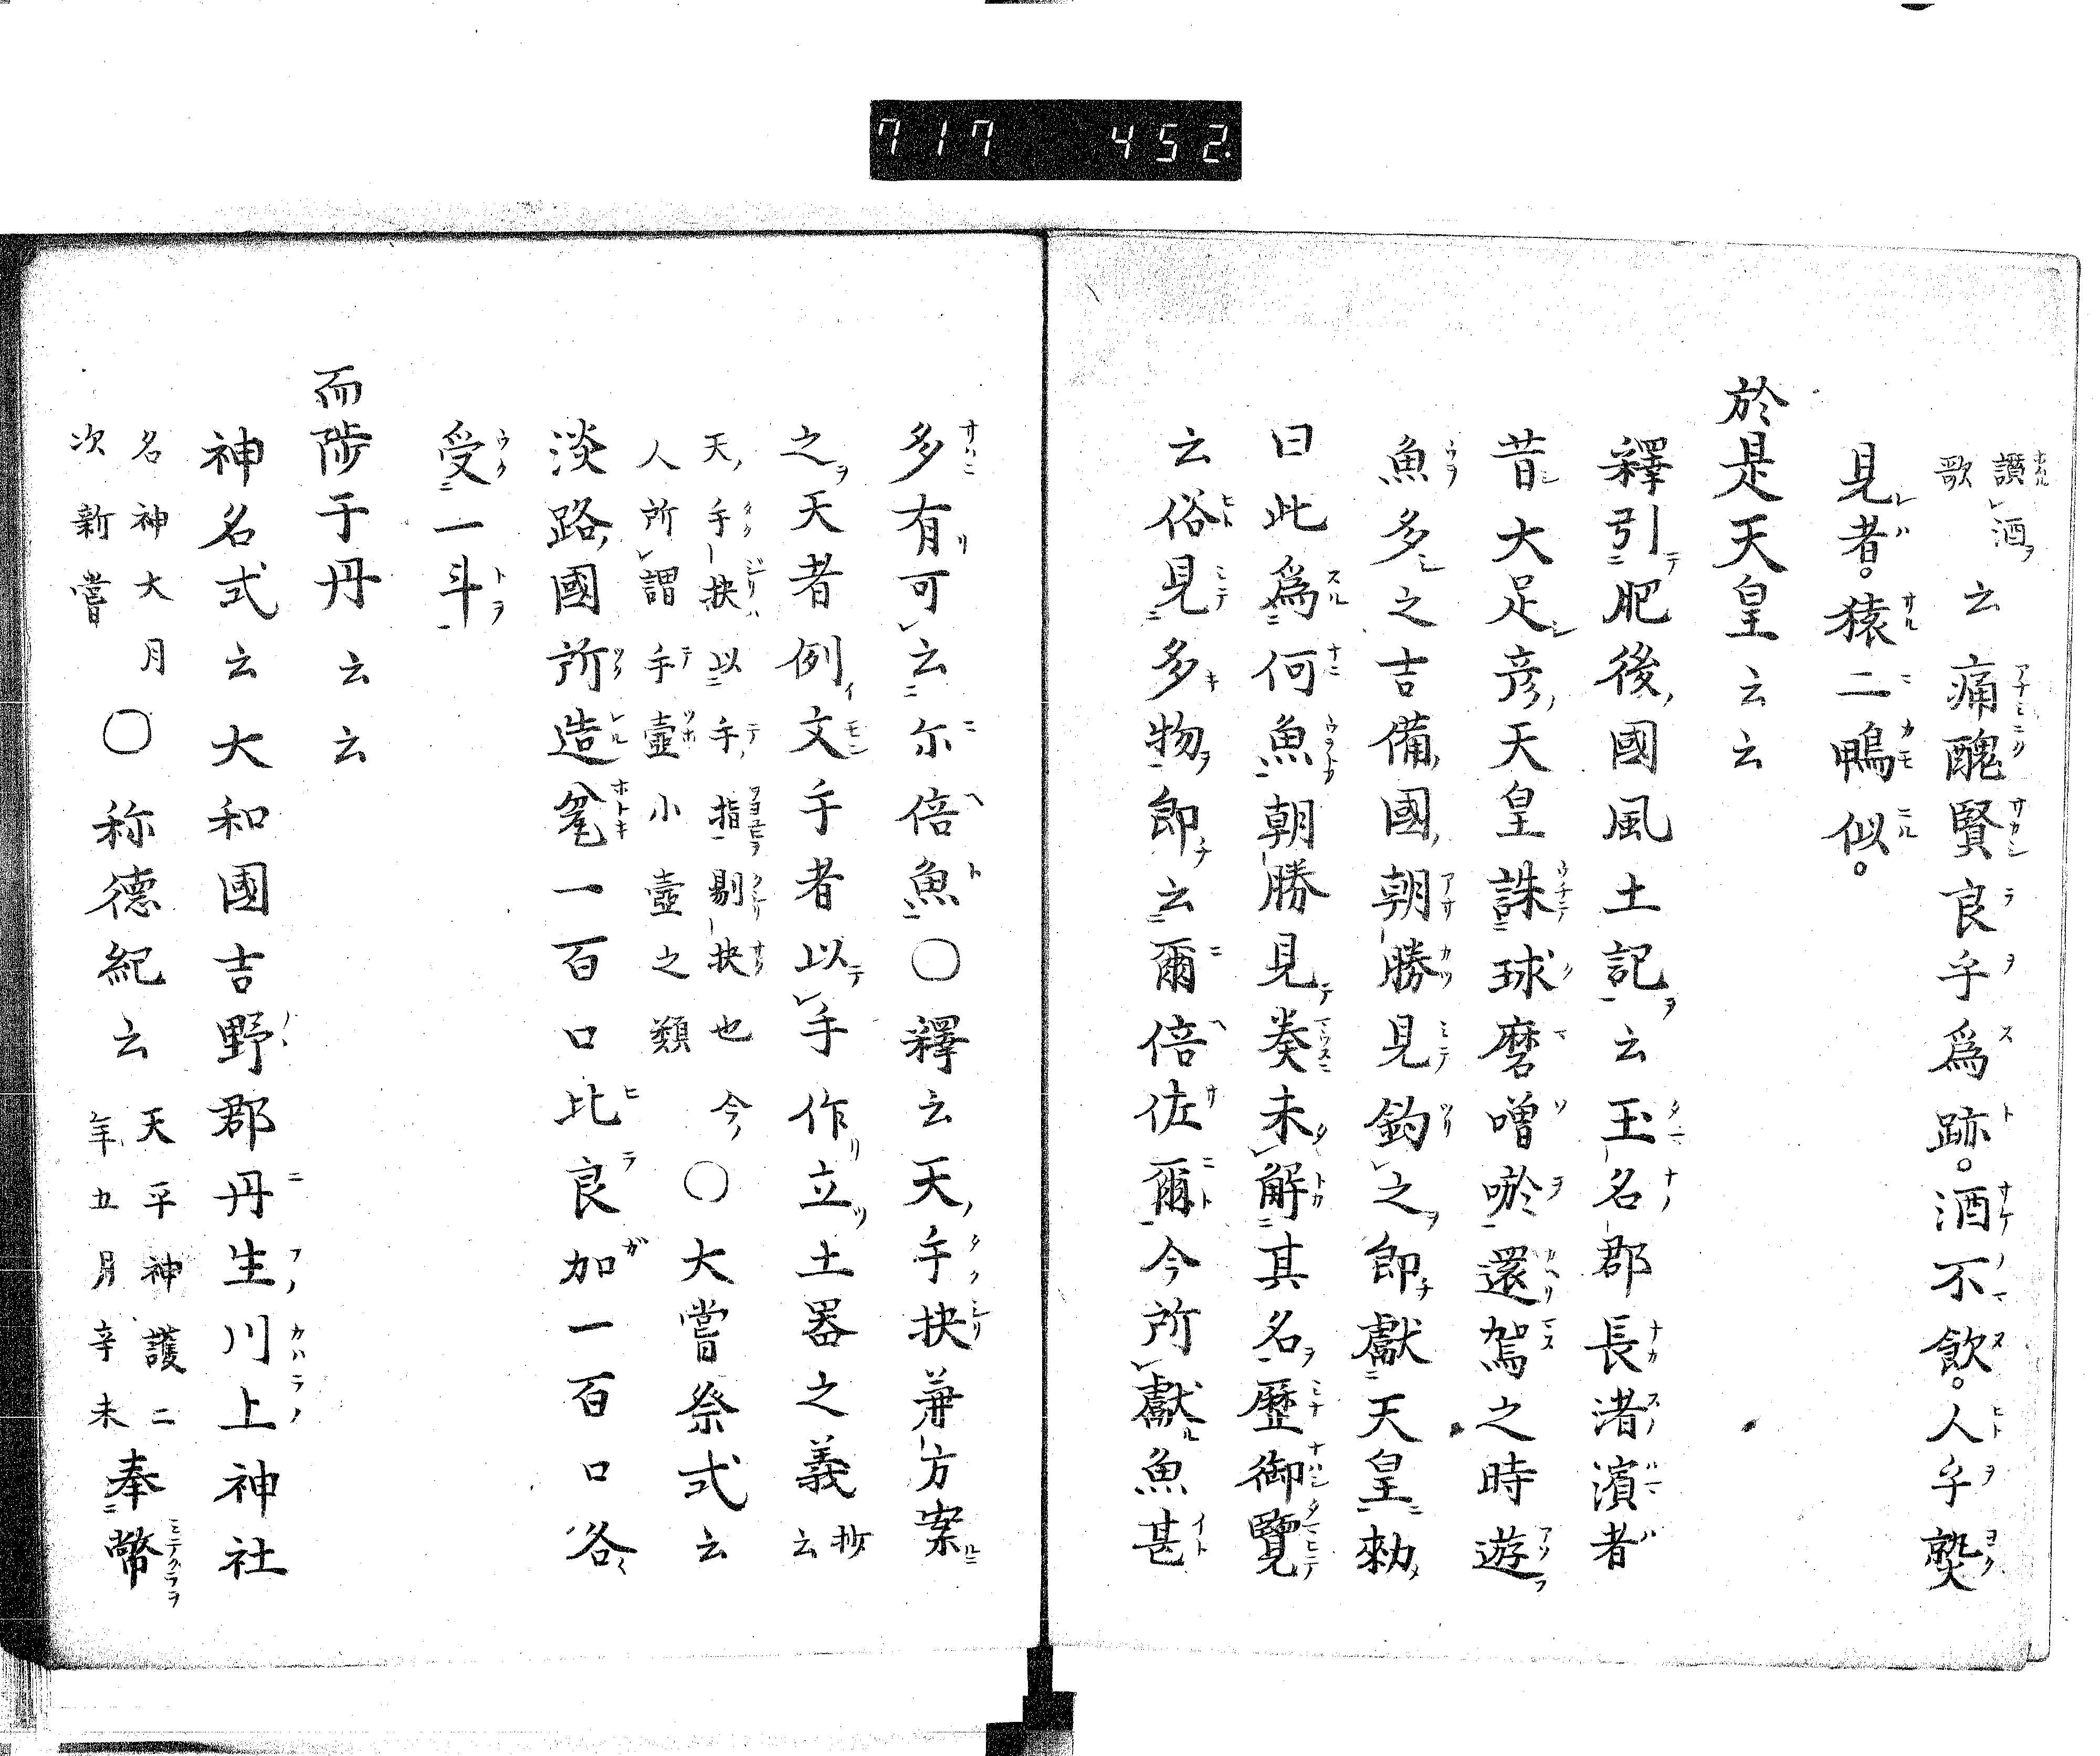 717 452.
讃酒歌云痛醜賢良乎爲跡。酒不飲。人乎𤎼
見者。猿二鴨似。
於是天皇云云
釋引肥後國風土記云玉名郡長渚濱者
昔大足彦天皇誅球磨噌唹還駕之時遊
魚多之吉備國朝勝見釣之即獻天皇勅
曰此爲何魚朝勝見奏未解其名歷御覽
云俗見多物即云爾倍佐爾今所獻魚甚
多有可云尓倍魚〇釋云天手抉兼方案
之天者例文手者以手作立土器之義抄云
天手抉以手指剔抉也今
人所謂手壺小壺之類〇大嘗祭式云
淡路國所造瓫一百口比良加一百口各
受一斗
而陟于丹云云
神名式云大和國吉野郡丹生川上神社
名神大月次新嘗〇称德紀云天平神護二年五月辛未奉幣